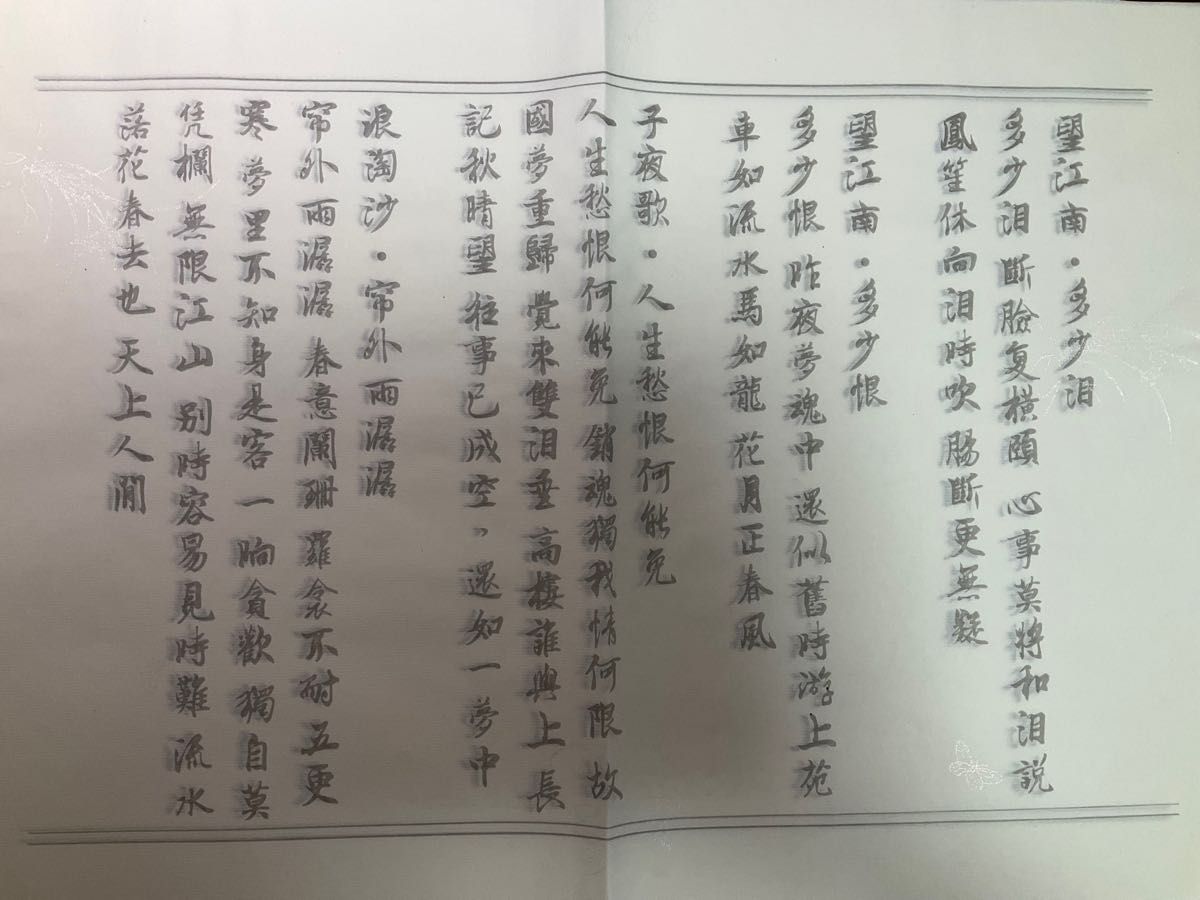 望江南·多少泪
多少泪 斷臉复橫頤 心事莫將和泪説
鳳笙休向泪時吹 腸斷更無疑
望江南·多少恨
多少恨 昨夜夢魂中 還似舊時游上苑
車如流水馬如龍 花月正春風
子夜歌·人生愁恨何能免
人生愁恨何能免 銷魂獨我情何限 故
國夢重歸 覺來雙泪垂 高樓誰與上 長
記秋晴望 往事已成空，還如一夢中
浪淘沙·帘外雨潺潺
帘外雨潺潺 春意闌珊 羅衾不耐五更
寒 夢里不知身是客 一晌貪歡 獨自莫
凭欄 無限江山 别時容易見時難 流水
落花春去也 天上人間